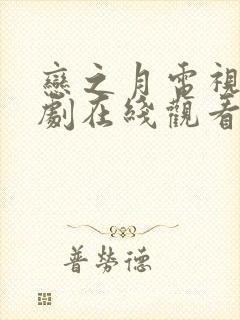 戀之月電視
劇在綫觀看
普勞德